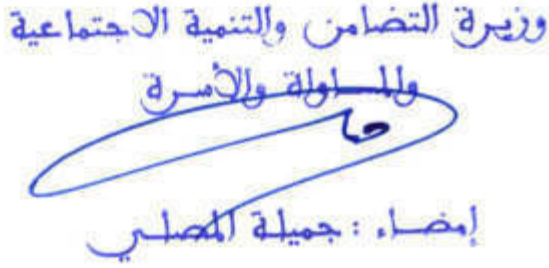 وزيرة التضامن والتنمية الاجتماعية
والمساواة والأسرة
إمضاء : جميلة المصلي